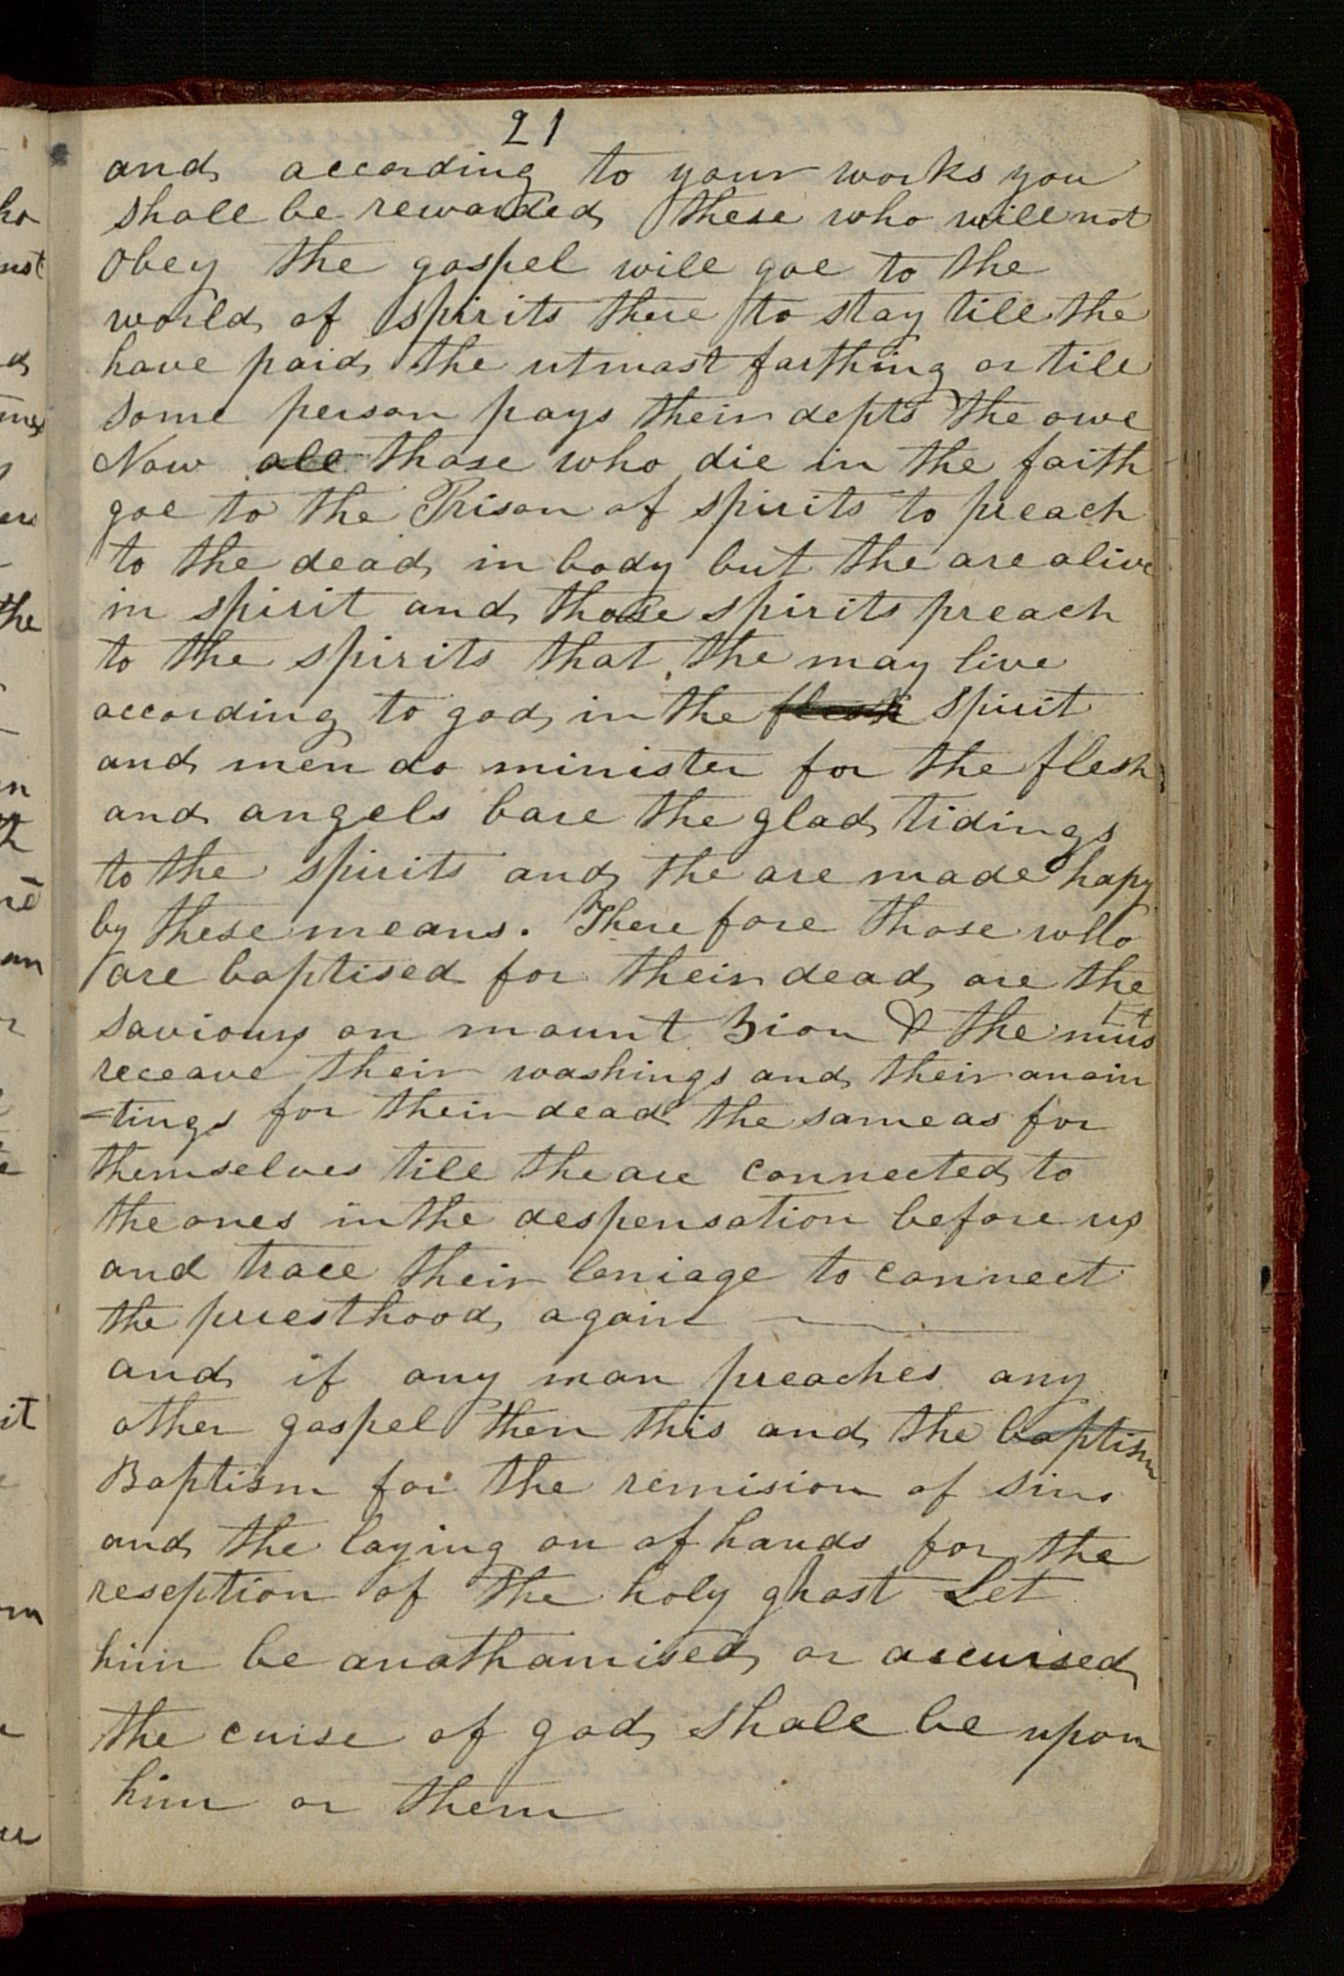 21
and according to your works you
shall be rewarded these who will not
Obey the gospel will goe to the
world of spirits there to stay till the
have paid the utmost farthing or till
some person pays their depts the owe
Now all those who die in the faith
goe to the Prison of spirits to preach
to the dead in body but the are alive
in spirit and those spirits preach
to the spirits that the may live
according to god in the flesh spirit
and men do minister for the flesh
and angels bare the glad tidings
to the spirits and the are made hapy
by these means. There fore those who
are baptised for their dead are the
saviours on mount Zion & the must
receave their washings and their anoin
=tings for their dead the same as for
themselves till the are connected to
the ones in the despensation before us
and trace their leniage to connect
the priesthood again
and if any man preaches any
other gospel then this and the baptism
Baptism for the remision of sins
and the laying on of hands for the
reseption of the holy ghost Let
him be anathamised or accursed
the curse of god shall be upon
him or them